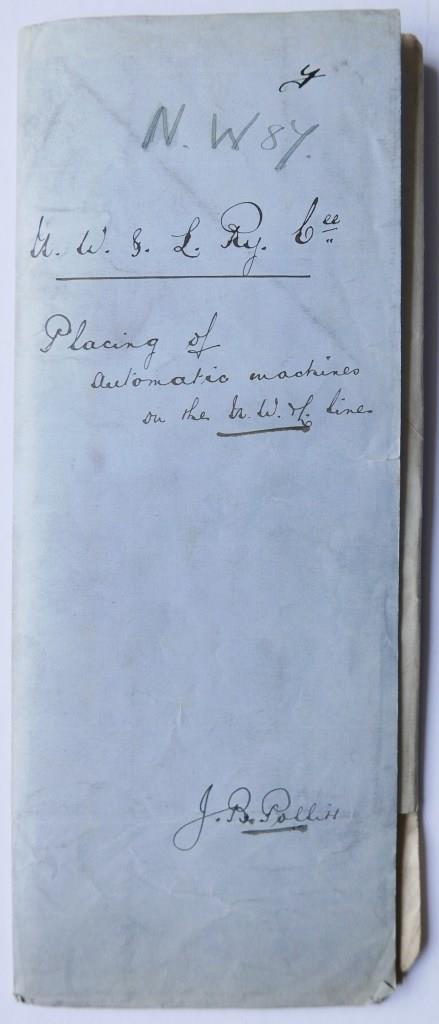 N. W 87.
N. W. & L. Ry. Cee
Placing of
automatic machines
on the N. W. & L. line
J. B. Pollitt